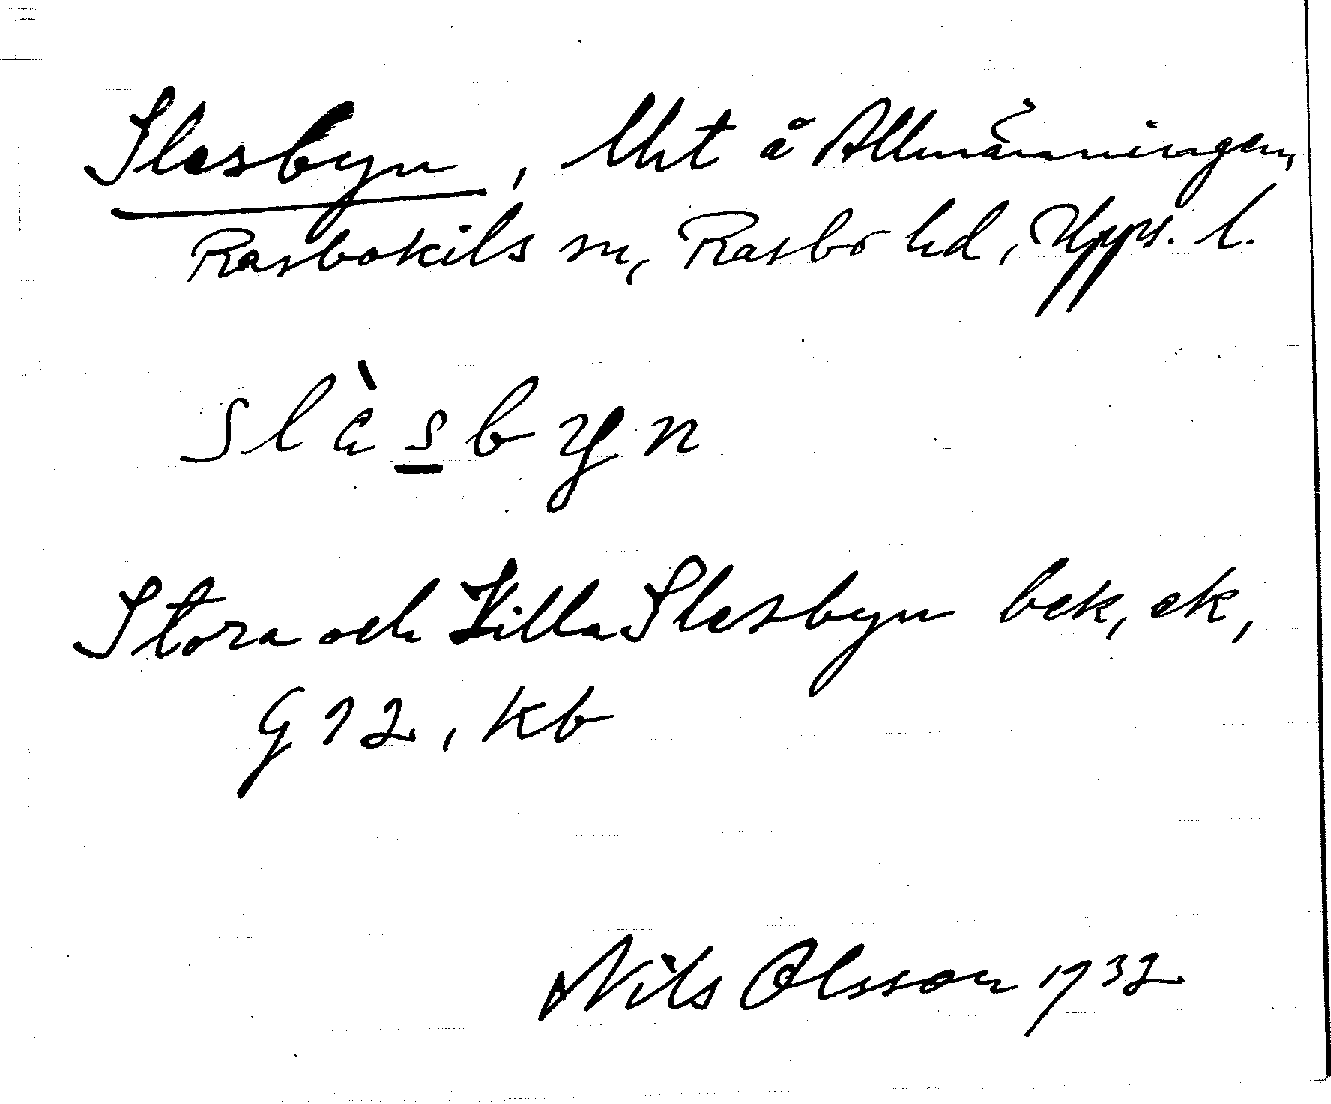 Slesbyn, lht å Allmänningen,
Rasbokils sn, Rasbo hd, Upps. l.
slèsbyn
Stora och Lilla Slesbyn bek, ek,
G 92, kb
Nils Olsson 1932